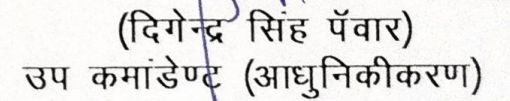 (दिगेन्द्र सिंह पॅवार)
उप कमांडेण्ट (आधुनिकीकरण)